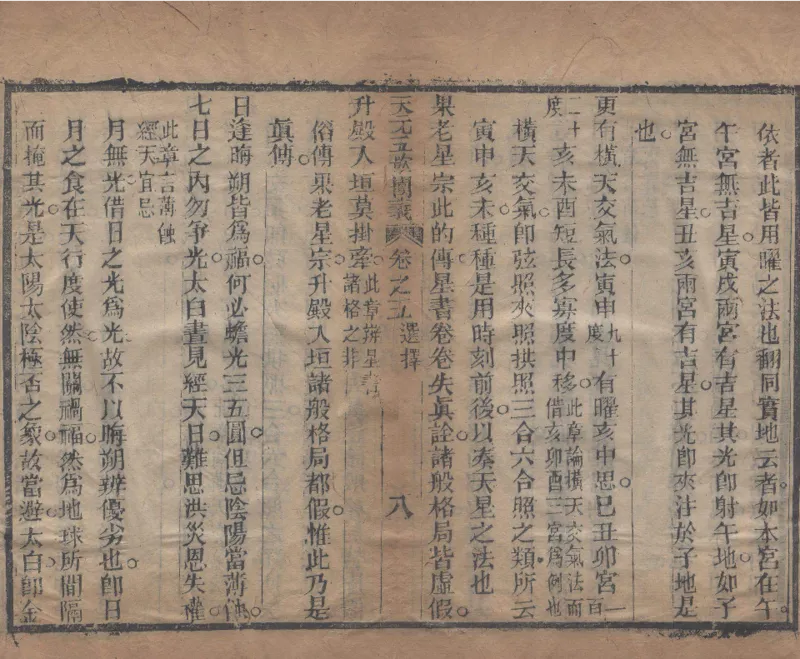 依者此皆用曜之法也翻同實地云者如本宮在午
午宮無吉星寅戌兩宮有吉星其光卽射午地如子
宮無吉星丑亥兩宮有吉星其光卽夾注於子地是
也
更有橫天交氣法寅申九十度有曜亥中思巳丑卯宮一百
二十度亥未酉短長多寡度中移此章論橫天交氣法而借亥卯酉三宮爲例也
橫天交氣卽弦照夾照拱照三合六合照之類所云
寅申亥未種種是用時刻前後以湊天星之法也
果老星宗此的傳星書卷卷失眞詮諸般格局皆虛假
天元五歌闡義 卷之五 選擇 八
升殿入垣莫掛牽此章辨星書諸格之非
俗傳果老星宗升殿入垣諸般格局都假惟此乃是
眞傳
日逢晦朔皆爲福何必蟾光三五圓但忌陰陽當薄蝕
七日之內勿爭光太白晝見經天日難思洪災恩失權
此章言薄蝕經天宜忌
月無光借日之光爲光故不以晦朔辨優劣也卽日
月之食在天行度使然無關禍福然爲地球所間隔
而掩其光是太陽太陰極否之象故當避太白卽金